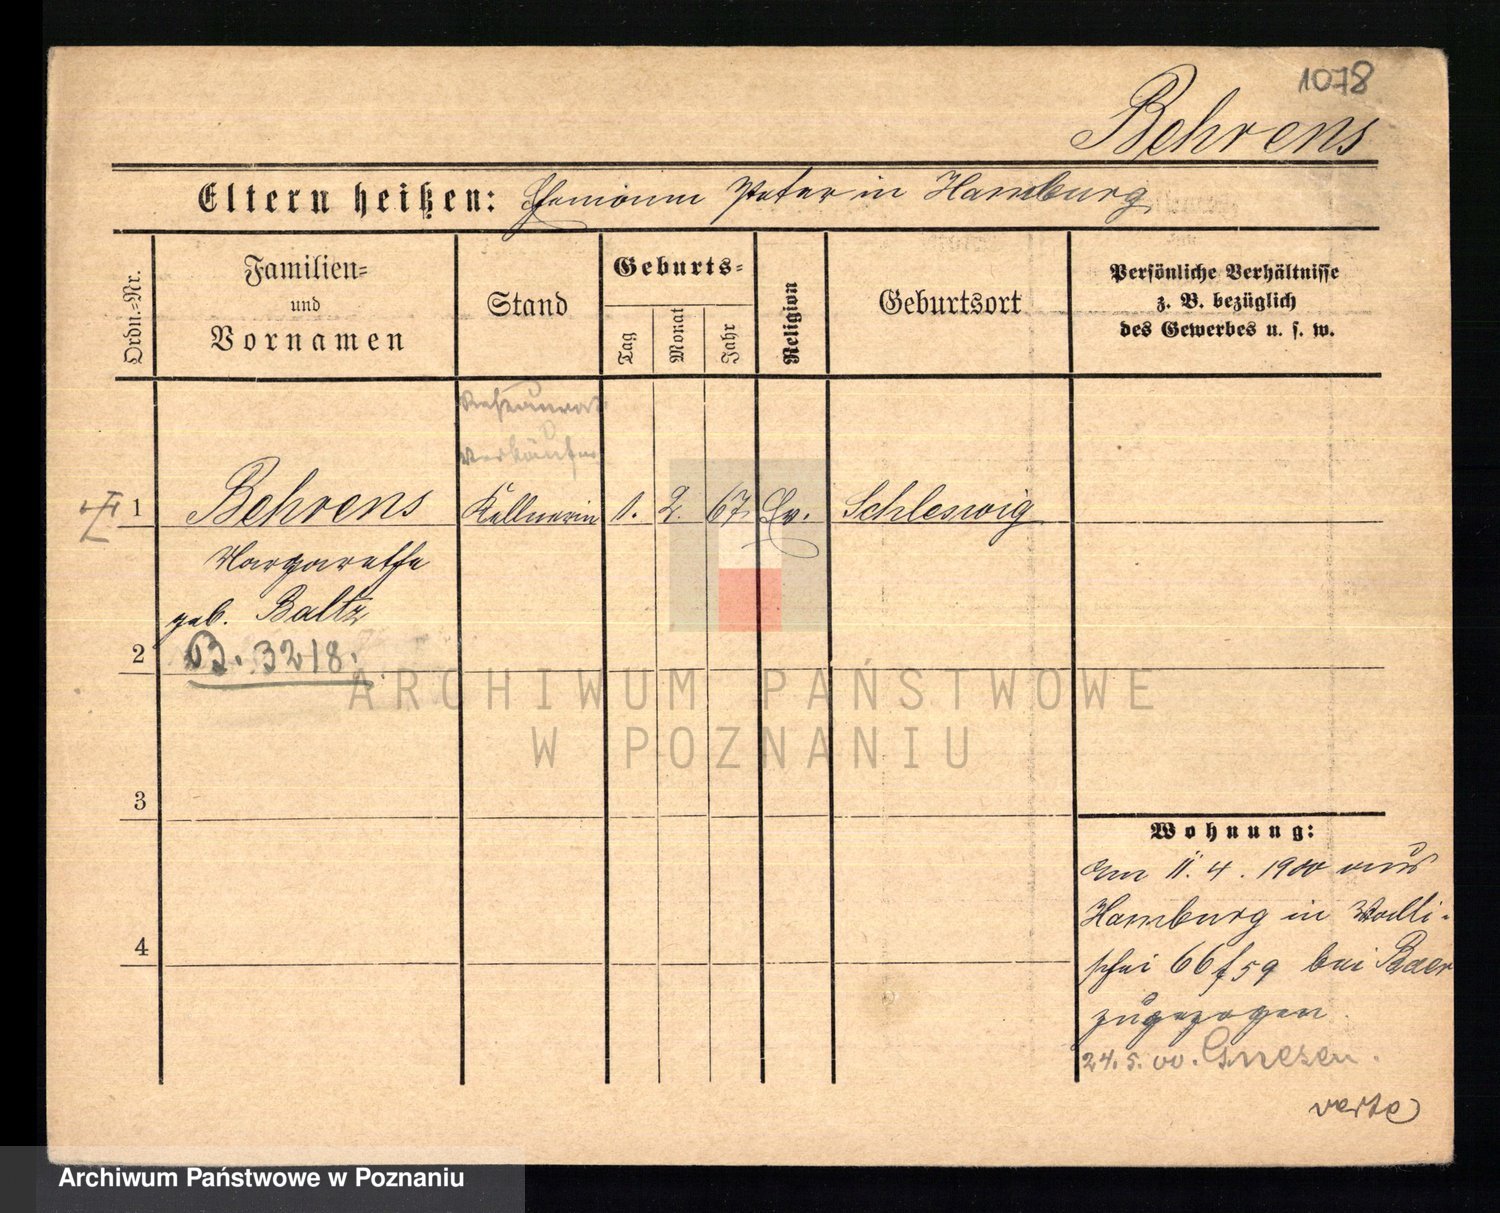 1078
Behrens
Eltern heißen: Ehemann Peter in Hamburg
Ordn.=Nr.
Familien=
und
Vornamen
Stand
Geburts=
Tag
Monat
Jahr
Religion
Geburtsort
Persönliche Verhältnisse
z. B. bezüglich
des Gewerbes u. s. w.
Verkäuferin
1 Behrens Kellnerin 1. 2. 67 Ev. Schleswig
Margarethe
geb. Baltz
2 B. 3218.
3
4
Wohnung:
Am 11. 4. 1900 aus
Hamburg in Walli-
schei 66/59 bei Baer
zugezogen
24. 5. 00. Gnesen.
verte
ARCHIWUM PAŃSTWOWE
W POZNANIU
Archiwum Państwowe w Poznaniu